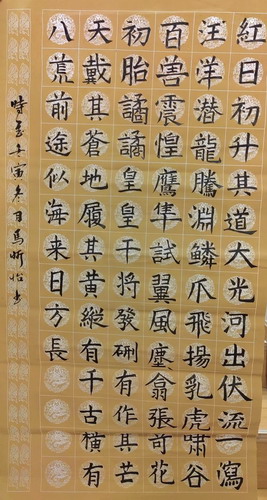 紅日初升其道大光河出伏流一瀉
汪洋潛龍騰淵鱗爪飛揚乳虎嘯谷
百兽震惶鷹隼試翼風塵翕張奇花
初胎譎譎皇皇干將發硎有作其芒
天戴其蒼地履其黃縱有千古橫有
八荒前途似海来日方長
時在壬寅冬月馬昕怡书